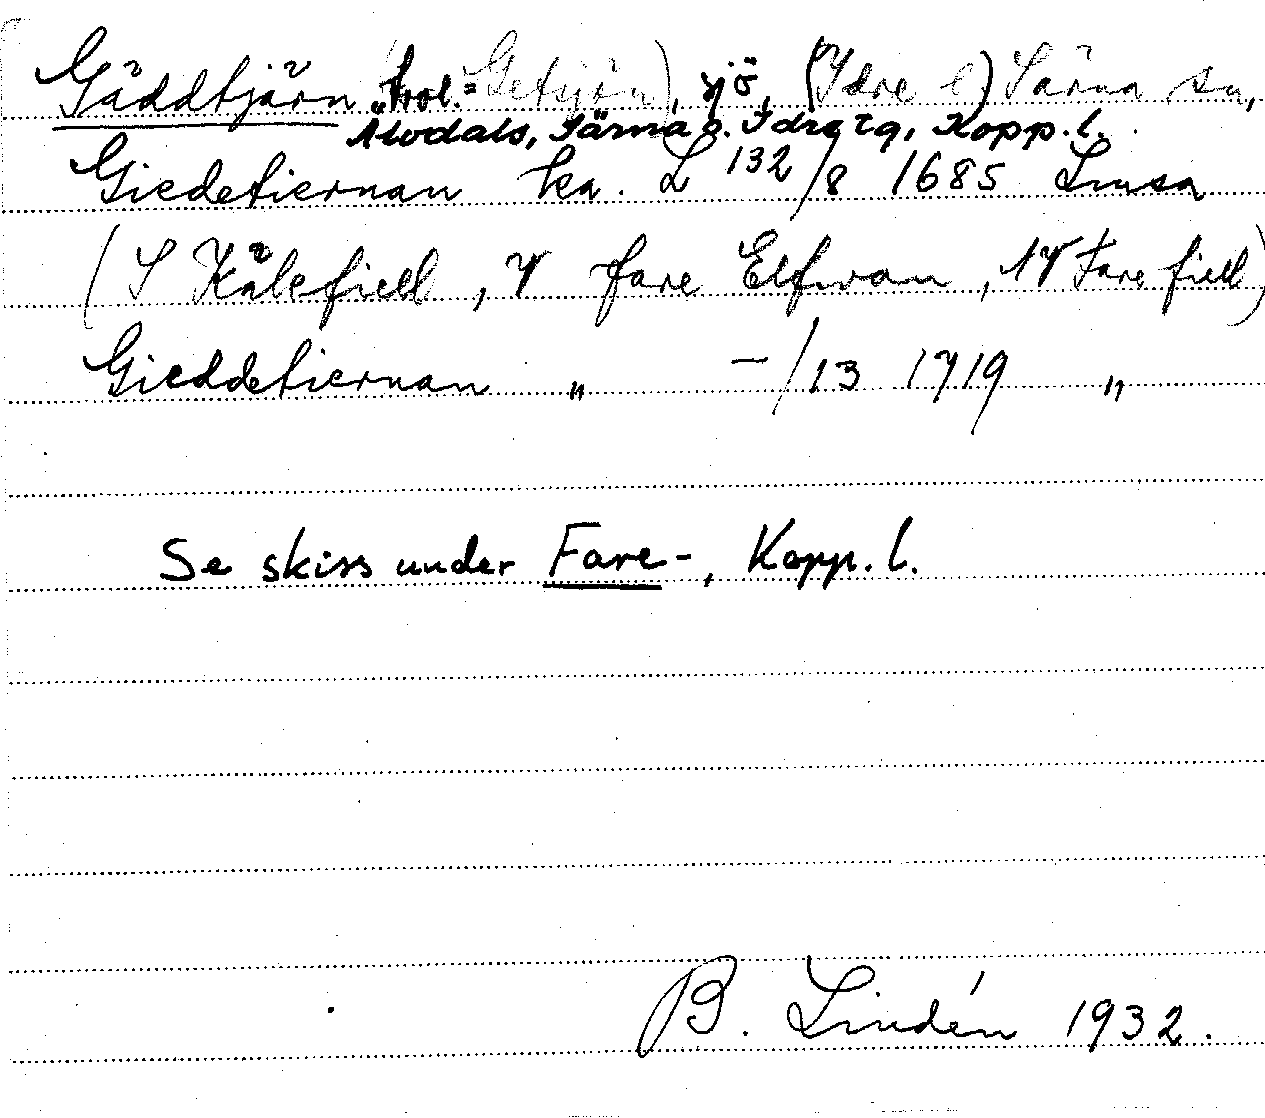 Gäddtjärn (trol. = Getsjön), sjö, (Idre l) Särna sn,
Älvdals, Särna o. Idre tg, Kopp. l.
Giedetiernan ka. L 132/8 1685 Limsa
( S Kålefiell, V fare Elfwan, N V Fare fiell)
Gieddetiernan „ —/13 1719 „
Se skiss under Fare-, Kopp. l.
B. Lindén 1932.